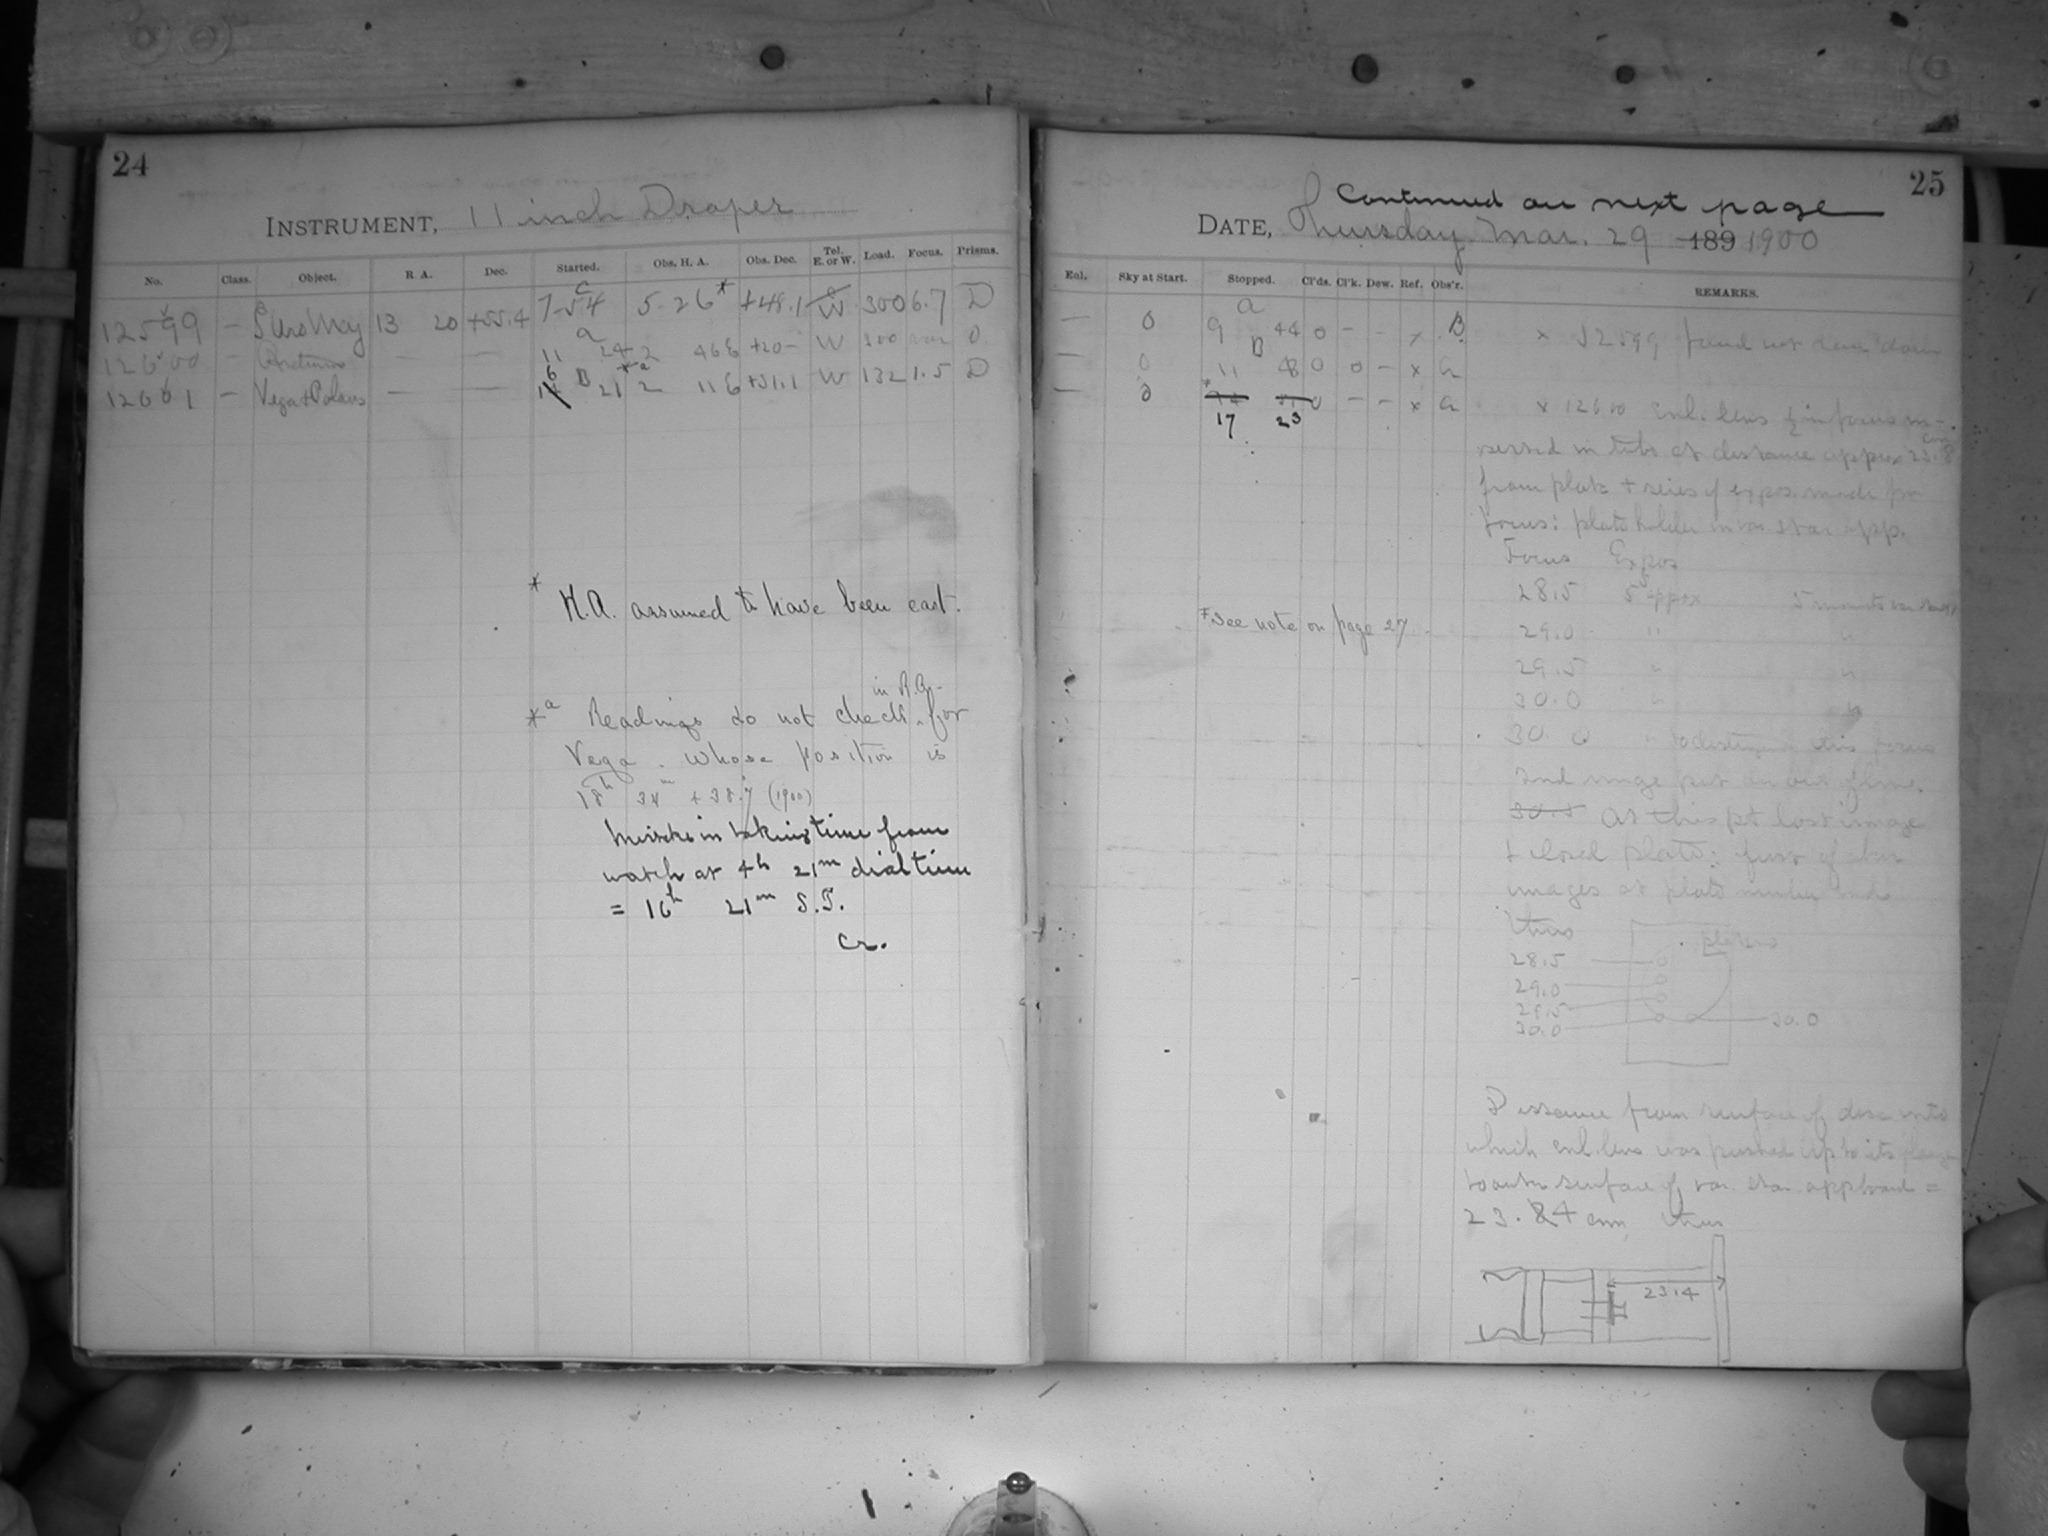 24
INSTRUMENT, 11 inch Draper
No. Class. Object. R. A. Dec. Started. Obs. H. A. Obs. Dec. Tel. E. or W. Load. Focus. Prisms.
12599 — Urs Maj 13 20 +55.4 7-54 5-26* +48.1 W 300 6.7 D
12600 — Arcturus — — 11 24 2 46 E +20- W 300 var 0
12601 — Vega + Polaris — — 16 B 21 2 11 E +31.1 W 132 1.5 D
* H.A. assumed to have been east.
*a Readings do not check in R.A. for
Vega. whose position is
18h 34m +38.7 (1900)
Mistake in taking time from
watch at 4h 21m dial time
= 16h 21m S.T.
Cr.
25
Continued on next page
DATE, Thursday Mar. 29 189 1900
Enl. Sky at Start. Stopped. Cl'ds. Cl'k. Dew. Ref. Obs'r. REMARKS.
— 0 9 44 0 - - x B. x 12599 found not dew down
— 0 11 48 0 0 - x Cr
— 0 17 23 0 - - x Cr x 12600 enl. lens ½ in focus in-
serted in tube at distance approx 23.8 cm
from plate + series of expos. made for
focus: plate holder in var. star app.
Focus Expos
28.5 5s appx 5
29.0 " "
29.5 " "
30.0 " "
30.0 " to distinguish this focus
2nd image put in out of line.
30.5 At this pt lost image
+ closed plate: four of star
images at plate
thus
28.5
29.0
29.5
30.0 30.0
*See note on page 27
Distance from surface of disc into
which enl. lens was pushed up to its flange
to outer surface of var. star app board =
23.84 cm, thus
23.4